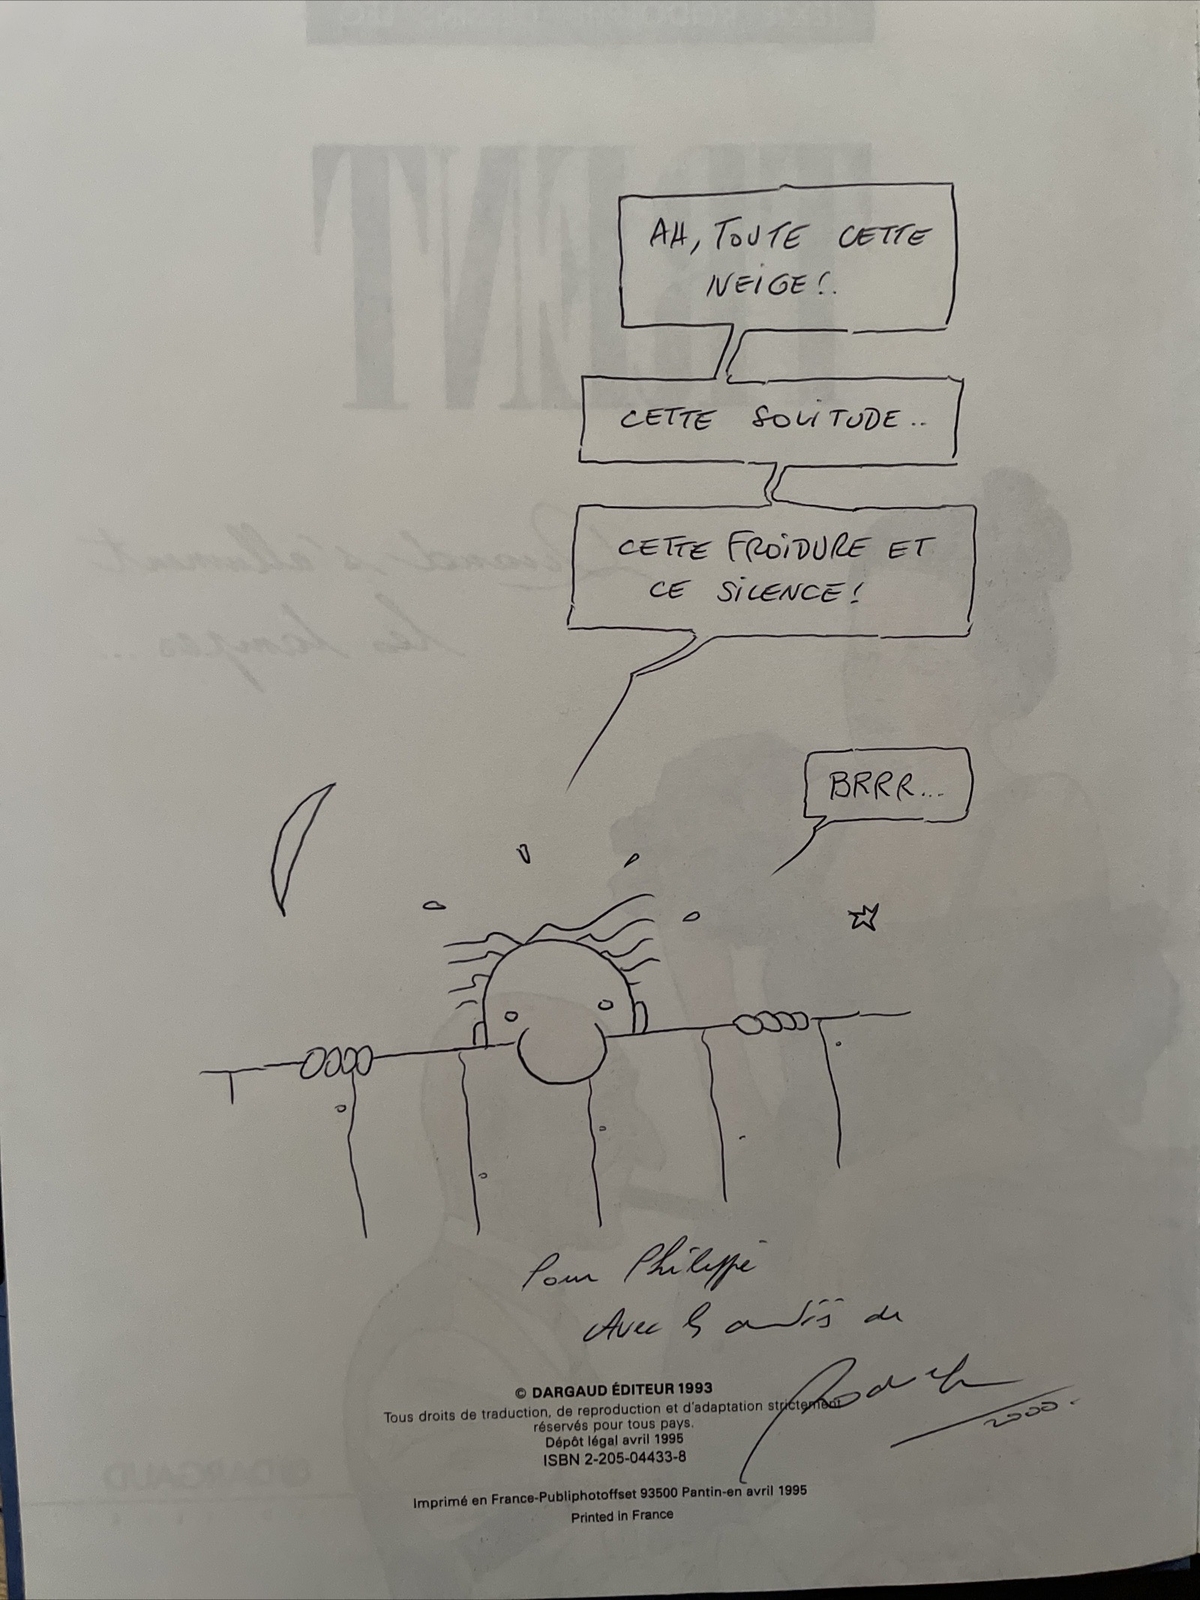 AH, TOUTE CETTE
NEIGE!.
CETTE SOLITUDE..
CETTE FROIDURE ET
CE SILENCE!
BRRR...
TRENT
Quand s'allument
les lampes...
Pour Philippe
Avec de
© DARGAUD ÉDITEUR 1993
Tous droits de traduction, de reproduction et d'adaptation strictement
réservés pour tous pays.
Dépôt légal avril 1995
ISBN 2-205-04433-8
2000.
DARGAUD
Imprimé en France-Publiphotoffset 93500 Pantin-en avril 1995
Printed in France